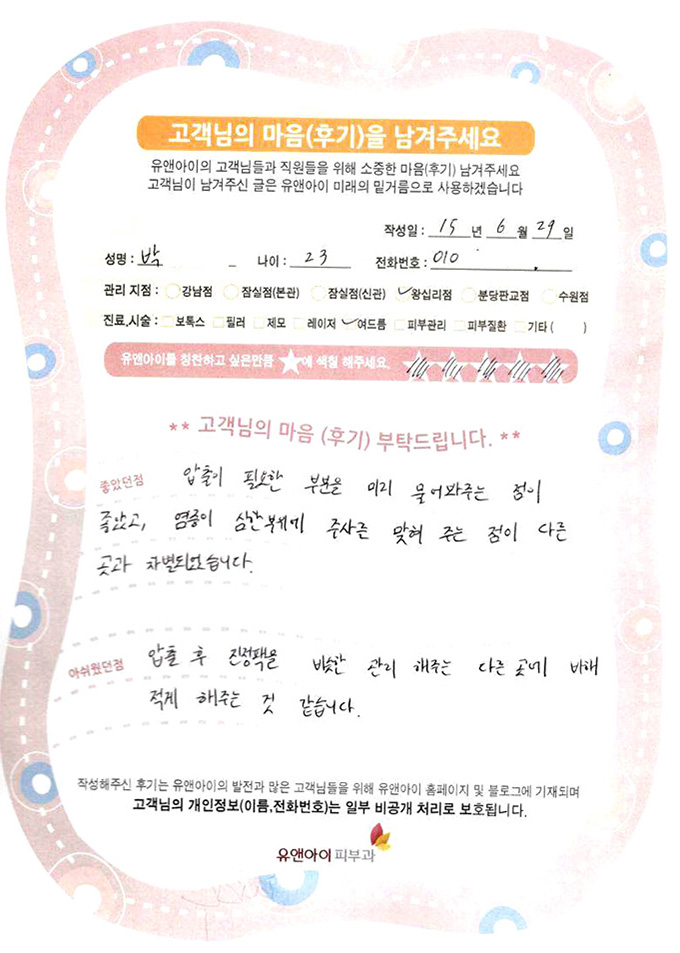 고객님의 마음(후기)을 남겨주세요
유앤아이의 고객님들과 직원들을 위해 소중한 마음(후기) 남겨주세요
고객님이 남겨주신 글은 유앤아이 미래의 밑거름으로 사용하겠습니다
작성일 : 15 년 6 월 29 일
성명 : 박 나이 : 23 전화번호 : 010
관리 지점 : 강남점 잠실점(본관) 잠실점(신관) 왕십리점 분당판교점 수원점
진료,시술 : 보톡스 필러 제모 레이저 여드름 피부관리 피부질환 기타 ( )
유앤아이를 칭찬하고 싶은만큼 ★에 색칠 해주세요.
** 고객님의 마음 (후기) 부탁드립니다. **
좋았던점 압출이 필요한 부분을 미리 물어봐주는 점이
좋았고, 염증이 심한부위에 주사른 맞혀 주는 점이 다른
곳과 차별되었습니다.
아쉬웠던점 압출 후 진정팩을 비슷한 관리 해주는 다른곳에 비해
적게 해주는 것 같습니다.
작성해주신 후기는 유앤아이의 발전과 많은 고객님들을 위해 유앤아이 홈페이지 및 블로그에 기재되며
고객님의 개인정보(이름,전화번호)는 일부 비공개 처리로 보호됩니다.
유앤아이 피부과